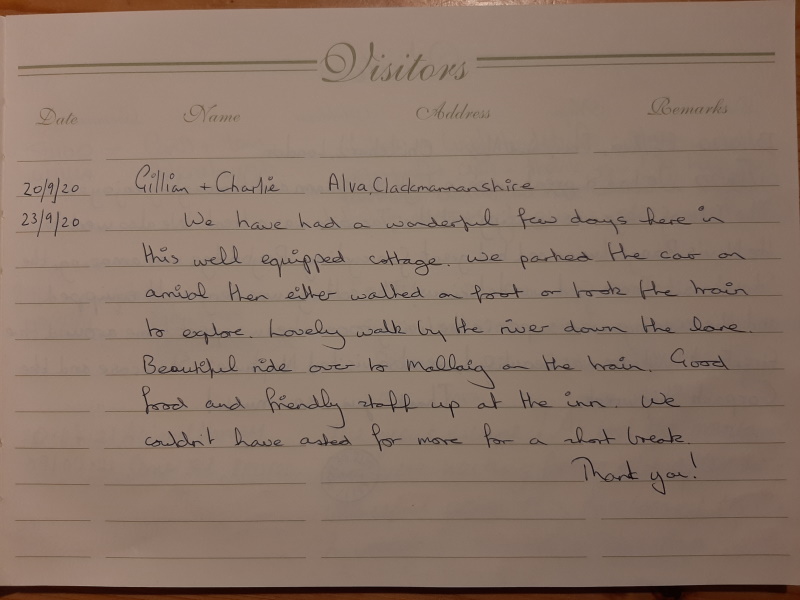 Visitors
Date Name Address Remarks
20/9/20 Gillian + Charlie Alva, Clackmannanshire
23/9/20 We have had a wonderful few days here in
this well equipped cottage. We parked the car on
arrival then either walked on foot or took the train
to explore. Lovely walk by the river down the lane.
Beautiful ride over to Mallaig on the train. Good
food and friendly staff up at the inn. We
couldn't have asked for more for a short break.
Thank you!